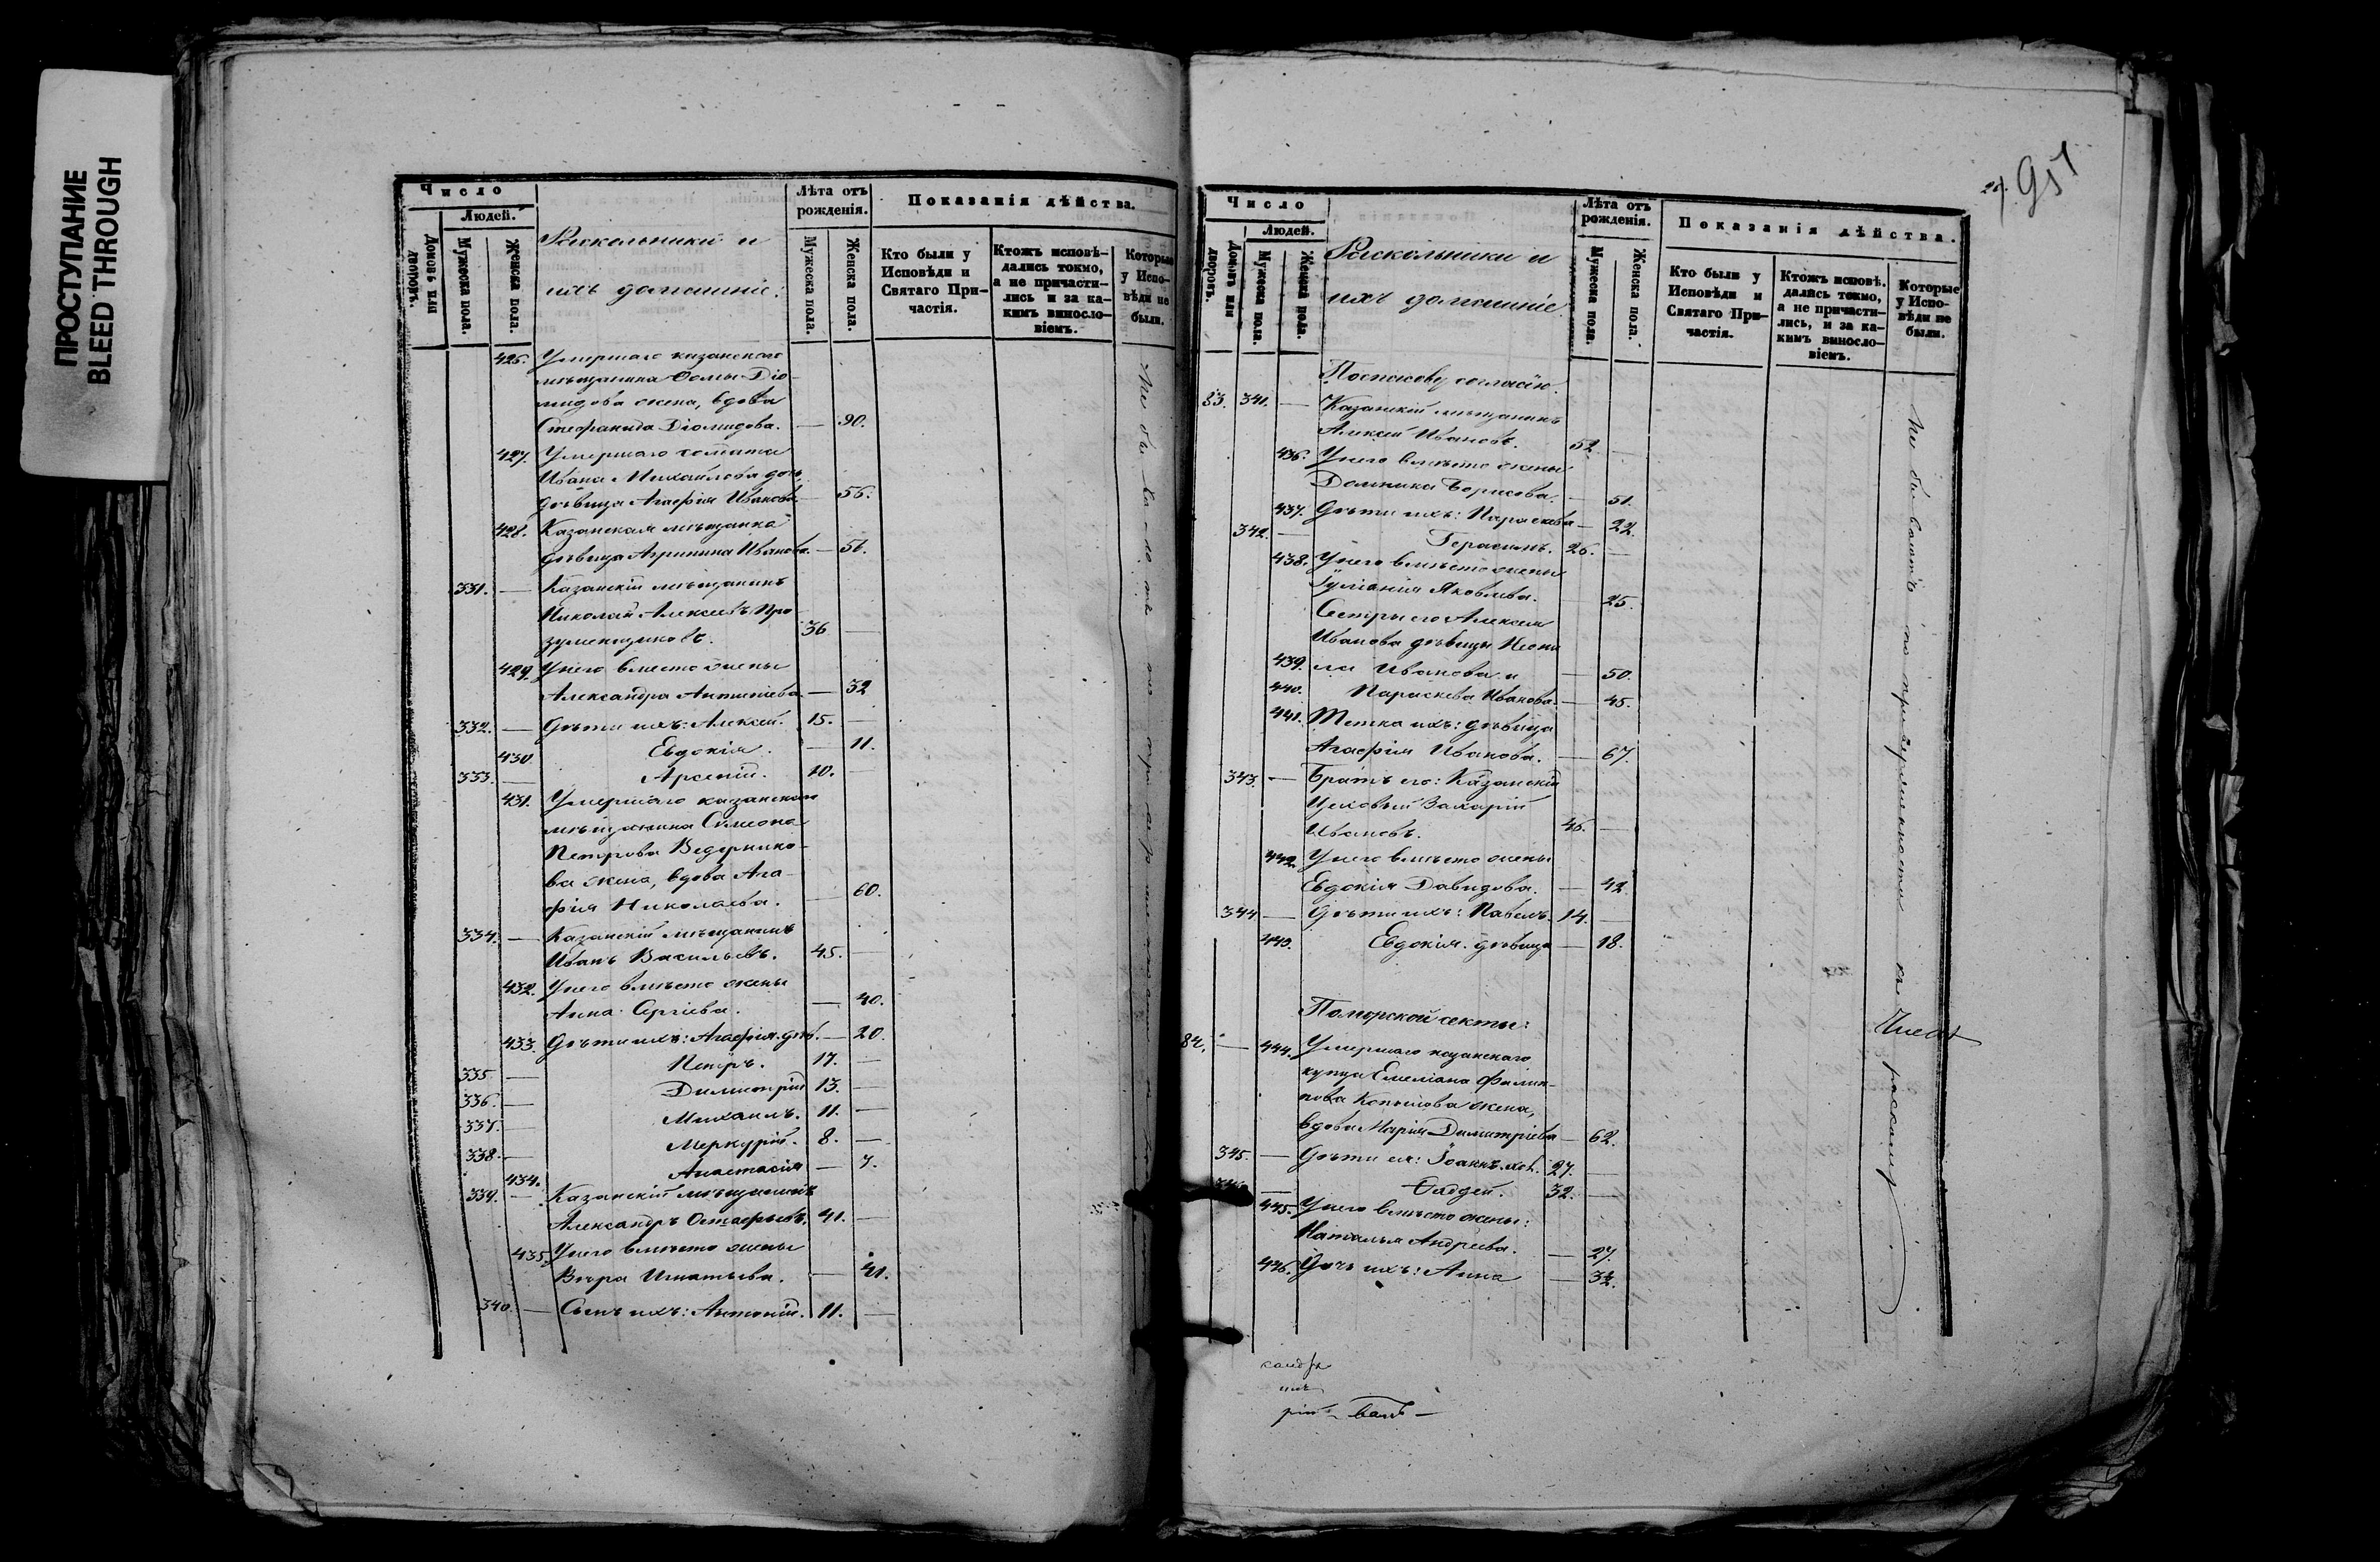 ПРОСТУПАНИЕ
BLEED THROUGH
Число
Людей.
Домовъ или дворовъ.
Мужеска пола.
Женска пола.
Раскольники и
ихъ домашніе:
Лѣта отъ рожденія.
Мужеска пола.
Женска пола.
Показанія дѣйства.
Кто были у Исповѣди и Святаго Причастія.
Ктожъ исповѣдались токмо, а не причастились и за какимъ винословіемъ.
Которые у Исповѣди не были.
426. Умершаго казанскаго
мѣщанина Ѳомы Діо-
мидова жена, вдова
Стефанида Діомидова. — 90.
427. Умершаго
Ивана Михайлова дочь,
дѣвица Агафія Иванова — 56.
428. Казанская мѣщанка
дѣвица Агрипина Иванова. — 56.
331. — Казанскій мѣщанинъ
Николай Алексѣевъ Про-
зументщиковъ. 36 —
429. У него вмѣсто жены
Александра Антипіева — 32
332. — Дѣти ихъ: Алексей. 15. —
430. Евдокія. — 11.
333. — Арсеній. 10. —
431. Умершаго казанскаго
мѣщанина Симеона
Петрова Ведернико-
ва жена, вдова Ага-
фія Николаева. — 60.
334. — Казанскій мѣщанинъ
Иванъ Васильевъ. 45. —
432. У него вмѣсто жены
Анна Сергіева. — 40.
433. Дѣти ихъ: Агафія дѣв. — 20.
335 — Петръ. 17. —
336. — Димитрій 13. —
337. — Михаилъ. 11. —
338. — Меркурій. 8. —
434. Анастасія — 7.
339. — Казанскій мѣщанинъ
Александръ Остафьевъ. 41. —
435. У него вмѣсто жены
Вѣра Игнатьева. — 41.
340. — Сынъ ихъ: Антоній. 11. —
957
Число
Людей.
Домовъ или дворовъ.
Мужеска пола.
Женска пола.
Раскольники и
ихъ домашніе
Лѣта отъ рожденія.
Мужеска пола.
Женска пола.
Показанія дѣйства.
Кто были у Исповѣди и Святаго Причастія.
Ктожъ исповѣдались токмо, а не причастились, и за какимъ винословіемъ.
Которые у Исповѣди не были.
Не бываютъ по приверженности къ расколу
Поспасову согласію.
83. 341. — Казанскій мѣщанинъ
Алексей Ивановъ. 52 —
436. У него вмѣсто жены
Домника Борисова. — 51.
437. Дѣти ихъ: Параскева — 22.
342. — Герасимъ. 26. —
438. У него вмѣсто жены
Іуліанія Яковлева. — 25.
Сестры его Алексея
Иванова дѣвицы Неони-
439. ла Иванова и — 50.
440. Параскева Иванова. — 45.
441. Тетка ихъ: дѣвица
Агафія Иванова. — 67.
343. — Братъ его: Казанскій
Цеховый Захарій
Ивановъ. 46. —
442. У него вмѣсто жены
Евдокія Давидова. — 42
344 — Дѣти ихъ: Павелъ. 14. —
443. Евдокія дѣвица — 18.
Поморской секты:
84. — 444. Умершаго казанскаго
купца Емеліана Филип-
пова Копылова жена,
вдова Марія Димитріева — 62.
345. — Дѣти ея: Іоаннъ хол. 27. —
346 — Ѳаддей. 32. —
445. У него вмѣсто жены:
Наталья Андреева. — 27.
446. Дочь ихъ: Анна — 3½.